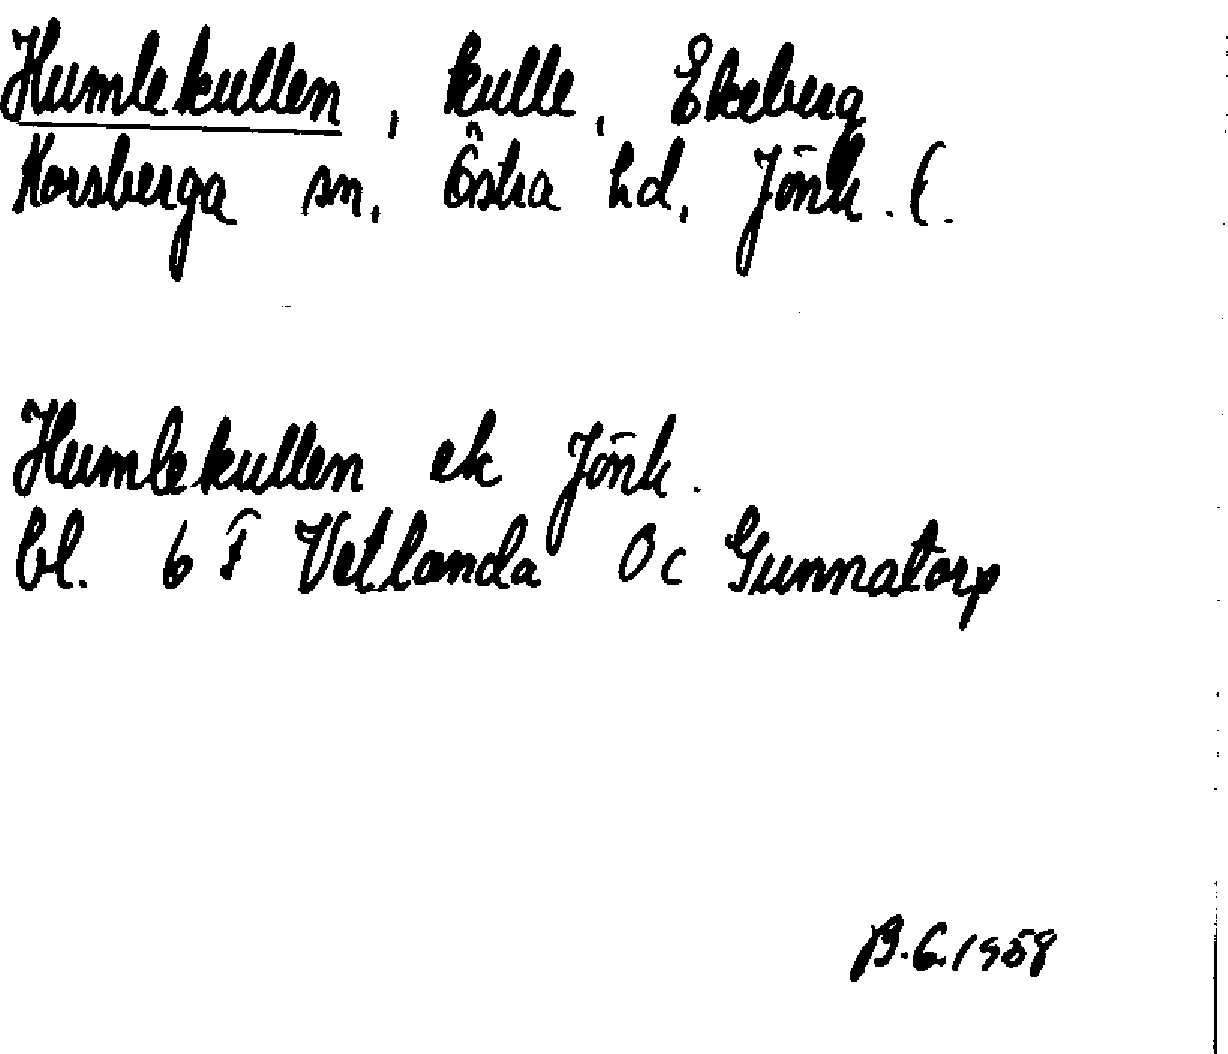 Humlekullen, kulle, Ekeberg
Korsberga sn, Östra hd, Jönk. l.
Humlekullen ek Jönk.
bl. 6 F Vetlanda 0c Gunnatorp
B.G. 1958